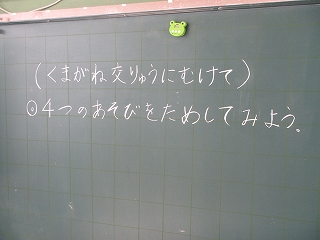 (くまがね交りゅうにむけて)
◎4つのあそびをためしてみよう。